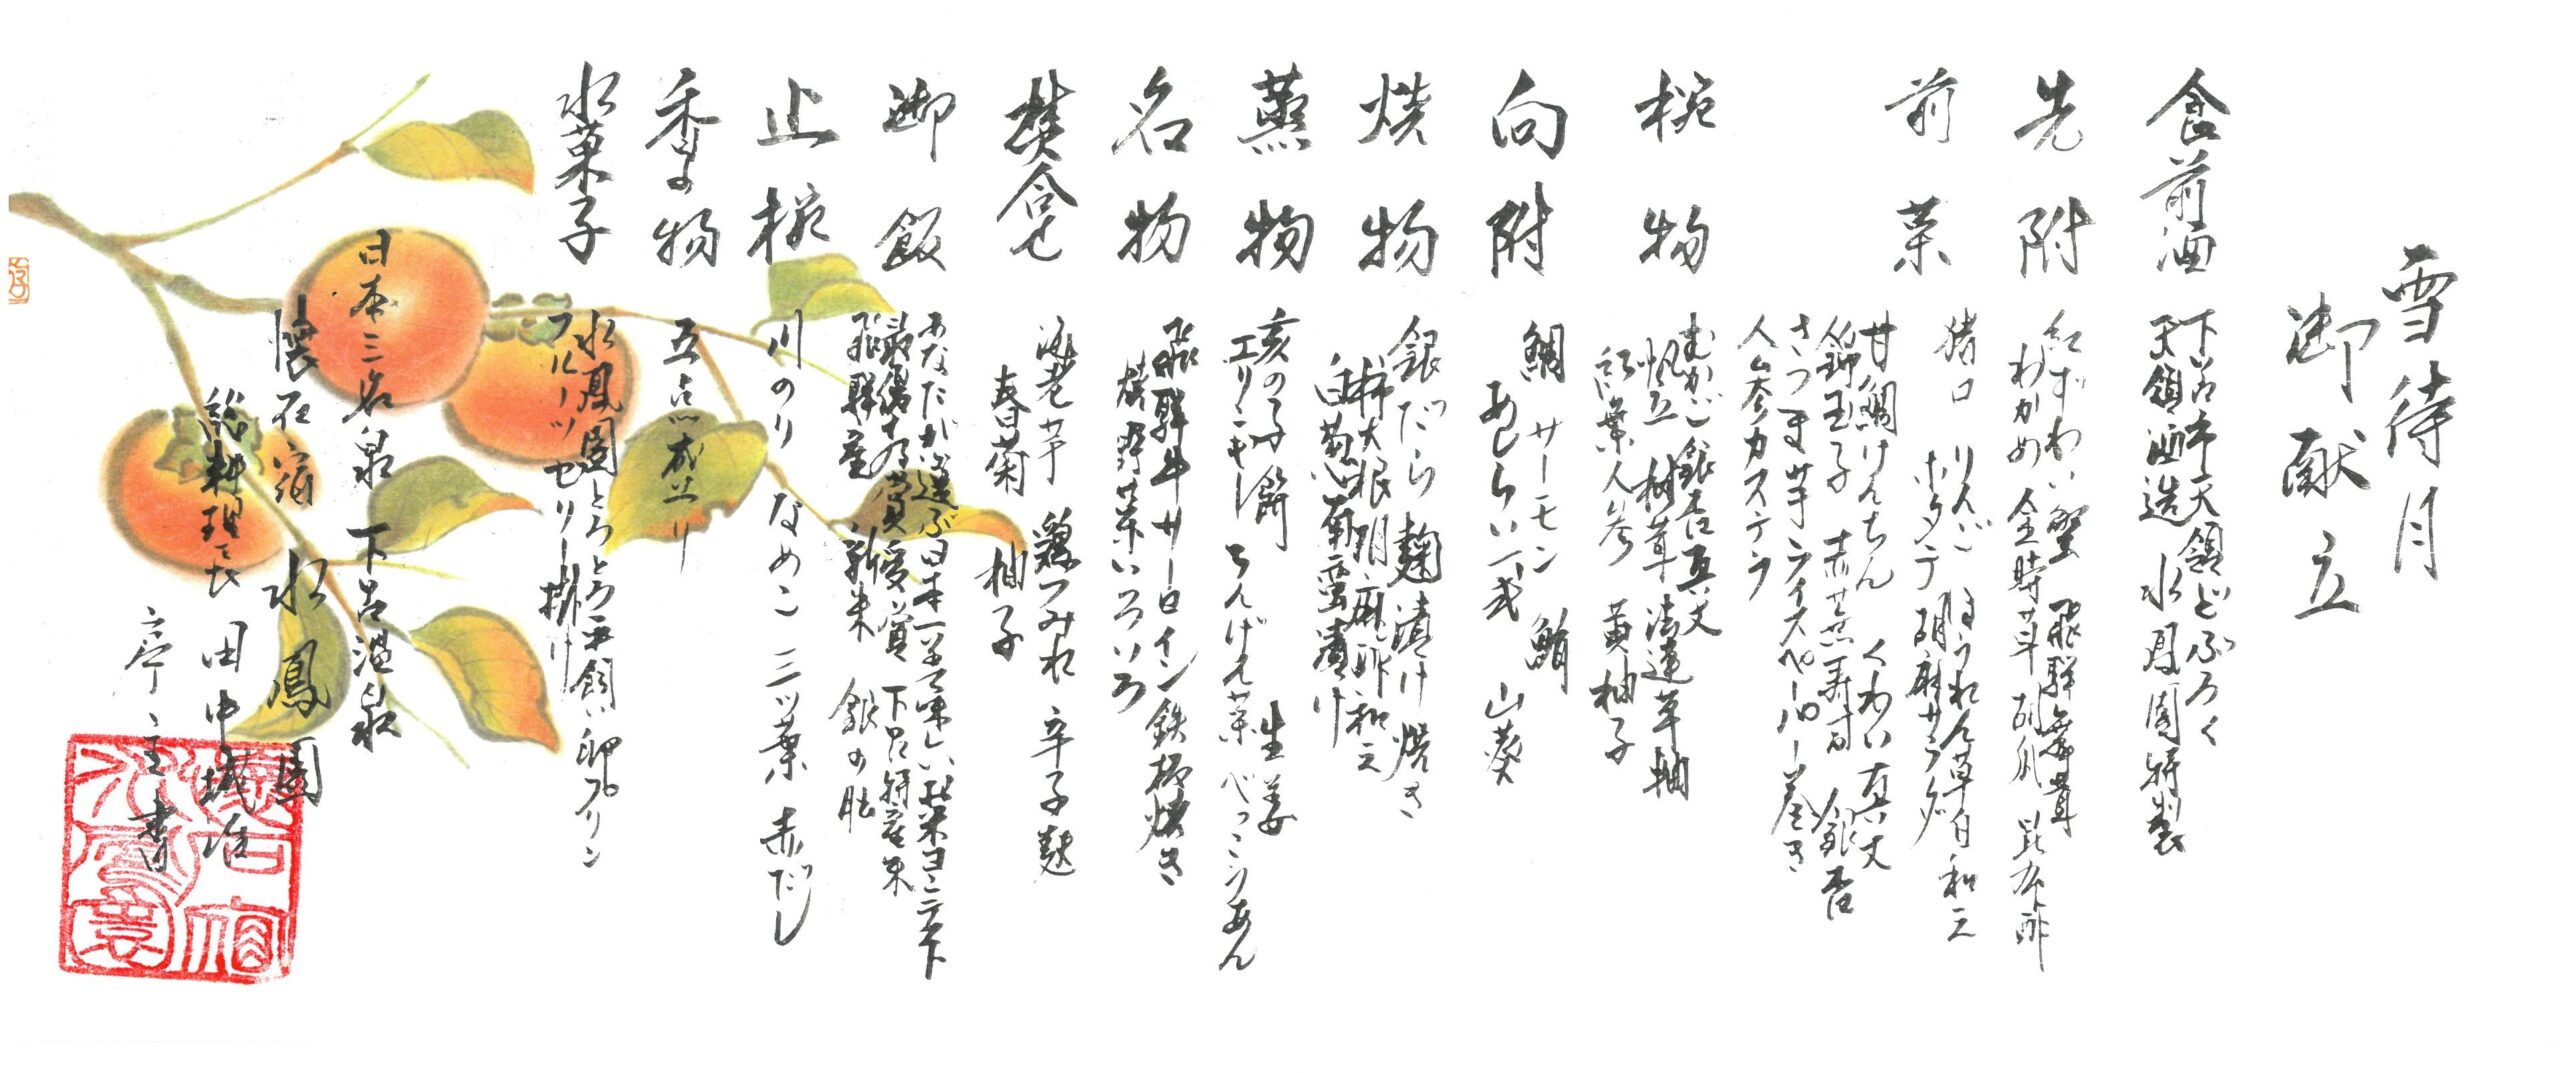 雪待月
御献立
食前酒
下呂市天領どぶろく
天領酒造 水鳳園特製
先附
紅ずわい蟹 飛騨舞茸
わかめ 金時草 胡瓜 昆布酢
前菜
猪口 りんご ほうれん草白和え
ホタテ胡麻サラダ
甘鯛けんちん くわい真丈
錦玉子 赤蕪寿司 銀杏
さつま芋ライスペーパー巻き
人参カステラ
椀物
むかご銀杏真丈
帆立 椎茸 法蓮草軸
紅葉人参 黄柚子
向附
鯛 サーモン 鮪
あしらい一式 山葵
焼物
銀だら麹漬け焼き
大根胡麻酢和え
白葱南蛮漬け
蒸物
亥の子餅 生姜
エリンギ ちんげん菜 べっこうあん
名物
飛騨牛サーロイン鉄板焼き
焼野菜いろいろ
焚合せ
海老芋 鶏つみれ 辛子麩
春菊 柚子
御飯
あなたが選ぶ日本一美味しい米コンテスト
最優秀賞受賞 下呂特産米
飛騨産 新米 銀の朏
止椀
川のり なめこ 三ッ葉 赤だし
香の物
五点盛り
水菓子
水鳳園とろとろ平飼い卵プリン
フルーツゼリー掛け
日本三名泉 下呂温泉
懐石宿 水鳳園
総料理長 田中
亭主書
懐石宿
水鳳園